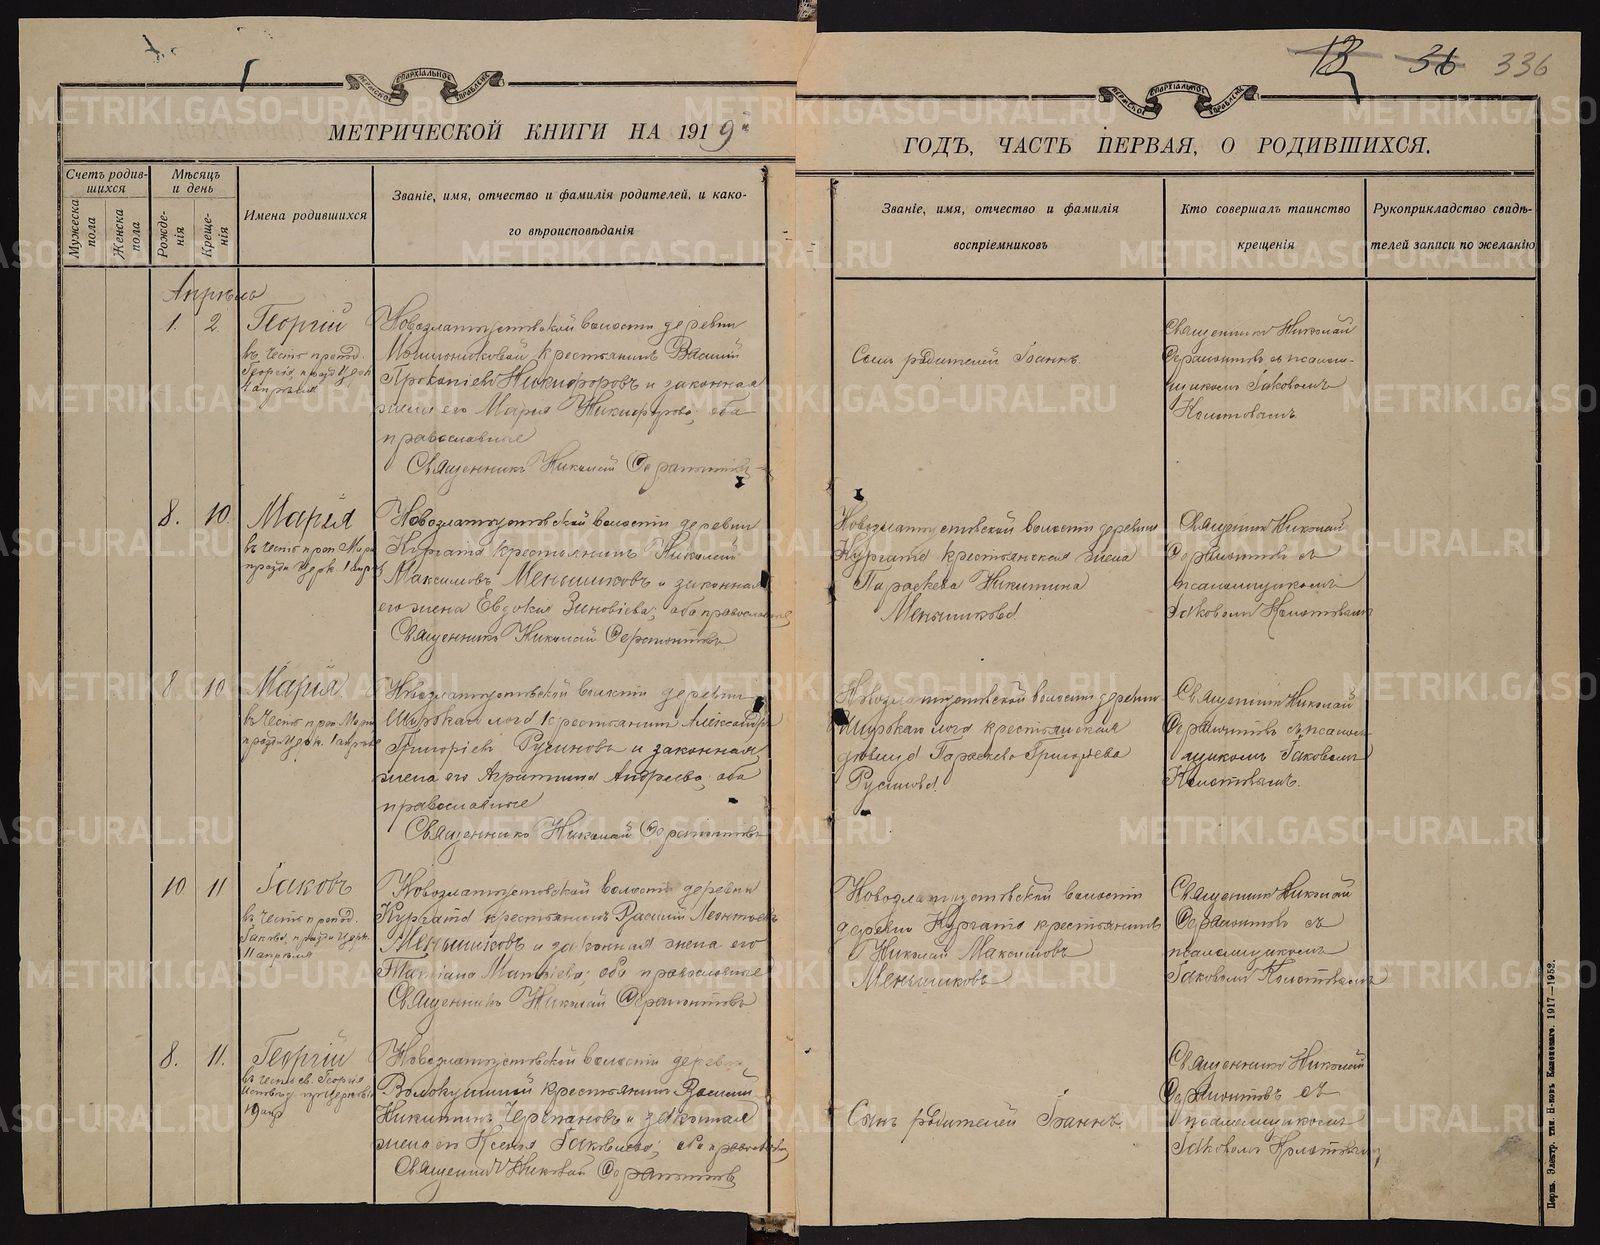 13 36 336
ПЕРМСКОЕ ЕПАРХІАЛЬНОЕ УПРАВЛЕНІЕ
МЕТРИЧЕСКОЙ КНИГИ НА 1919 й
Счетъ родив-
шихся
Мѣсяцъ
и день
Мужеска
пола
Женска
пола
Рожде-
нія
Креще-
нія
Имена родившихся
Званіе, имя, отчество и фамилія родителей, и како-
го вѣроисповѣданія
Апрѣль
1. 2. Георгій
въ честь препод.
Георгія, празд. Церк.
4 апрѣля
Новозлатоустовской волости деревни
крестьянинъ Василій
Прокопіевъ Никифоровъ и законная
жена его Марія Никифорова, оба
православные
Священникъ Николай
8. 10. Марія
въ честь преп. Маріи
празд. Церк. 1 апрѣля
Новозлатоустовской волости деревни
Кургата крестьянинъ Николай
Максимовъ Меньшиковъ и законная
его жена Евдокія Зиновіева, оба православные
Священникъ Николай
8 10 Марія
въ честь преп. Маріи
празд. Церк. 1 апрѣля
Новозлатоустовской волости деревни
Широкаго лога крестьянинъ Александръ
Григоріевъ Русиновъ и законная
жена его Андреева, оба
православные
Священникъ Николай
10 11 Іаковъ
въ честь препод.
Іакова, празд. Церк.
11 апрѣля
Новозлатоустовской волости деревни
Кургата крестьянинъ Василій Леонтьевъ
Меньшиковъ и законная жена его
Татіана Матѳіева, оба православные
Священникъ Николай
8. 11. Георгій
въ честь св. Георгія
Исповѣд. празд. Церковію
19 апр
Новозлатоустовской волости деревни
крестьянинъ Василій
Никитинъ Черепановъ и законная
жена его Ксенія Іаковлева, оба православные
Священникъ Николай
ПЕРМСКОЕ ЕПАРХІАЛЬНОЕ УПРАВЛЕНІЕ
ГОДЪ, ЧАСТЬ ПЕРВАЯ, О РОДИВШИХСЯ.
Званіе, имя, отчество и фамилія
воспріемниковъ
Кто совершалъ таинство
крещенія
Рукоприкладство свидѣ-
телей записи по желанію
Сынъ родителей Іоаннъ.
Священникъ Николай
съ псалом-
щикомъ Іаковомъ
Новозлатоустовской волости деревни
Кургата крестьянская жена
Параскева Никитина
Меньшикова
Священникъ Николай
съ
псаломщикомъ
Іаковомъ
Новозлатоустовской волости деревни
Широкаго лога крестьянская
дѣвица Параскева Григорьева
Русинова
Священникъ Николай
съ псалом-
щикомъ Іаковомъ
Новозлатоустовской волости
деревни Кургата крестьянинъ
Николай Максимовъ
Меньшиковъ
Священникъ Николай
съ
псаломщикомъ
Іаковомъ
Сынъ родителей Іоаннъ.
Священникъ Николай
съ
псаломщикомъ
Іаковомъ
Пермь. Электр. тип. Н-ковъ Каменскаго. 1917—1952.
METRIKI.GASO-URAL.RU